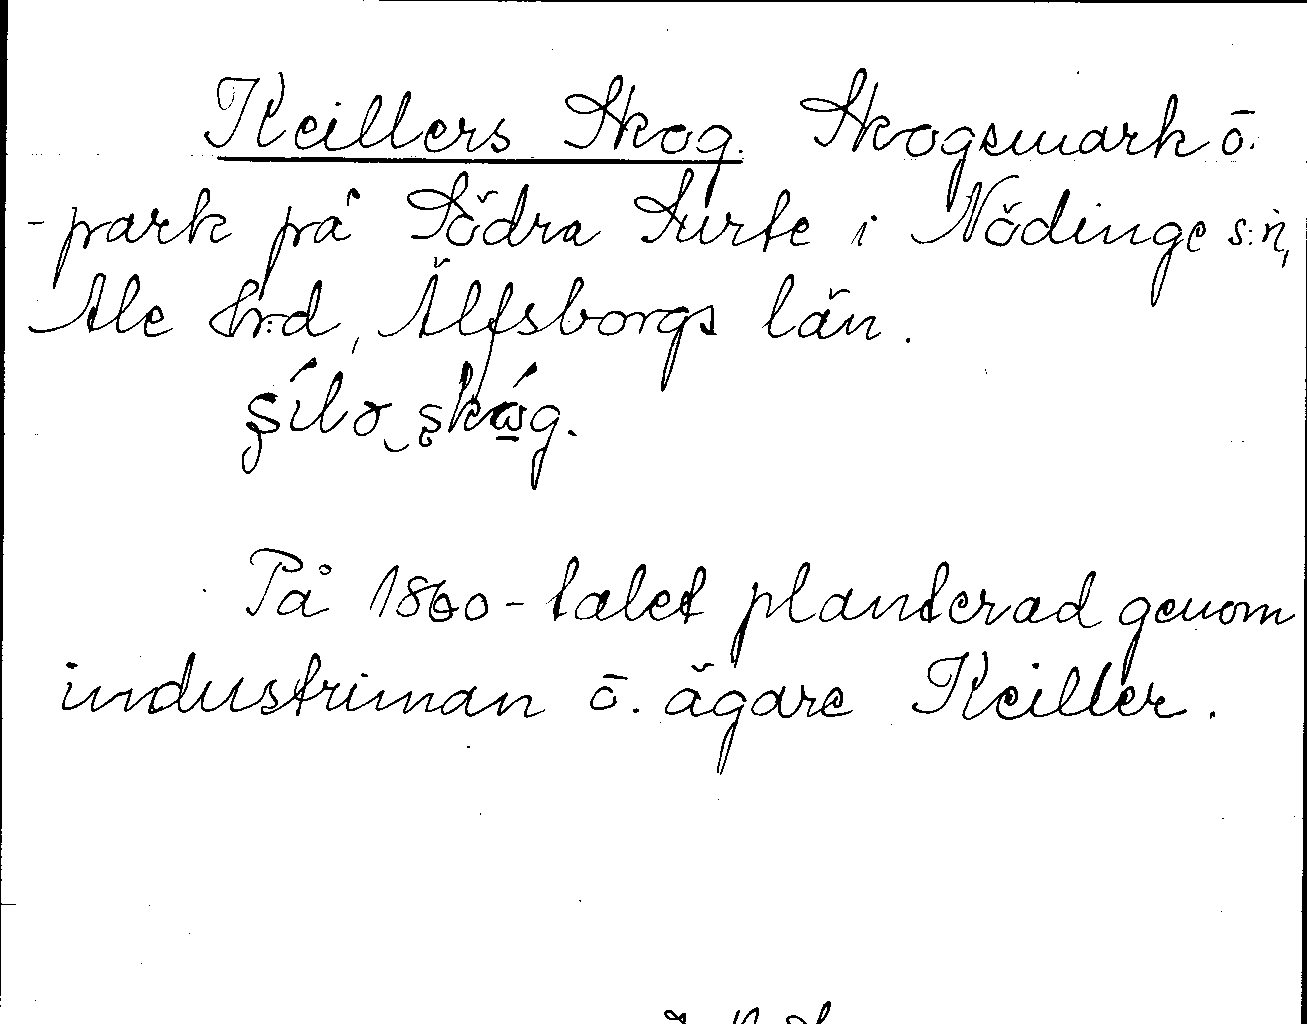 Keillers Skog. Skogsmark ō.
-park på Södra Surte i Nödinge s:n,
Ale hrd, Älfsborgs län.
På 1860-talet planterad genom
industriman ō. ägare Keiller.